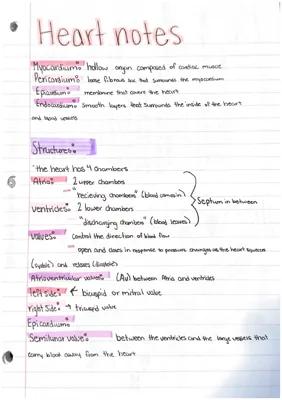 Heart notes
Myocardium: hollow organ composed of cardiac muscle
Pericardium: loose fibrous sac that surrounds the myocardium
Epicardium: membrane that covers the heart
Endocardium: Smooth layers that surrounds the inside of the heart
and blood vessels
Structures:
the heart has 4 chambers
Atria: 2 upper chambers
"recieving chambers" (blood comes in)
Septum in between
ventricles: 2 lower chambers
"discharging chambers" (blood leaves)
valves: control the direction of blood flow
open and closes in response to pressure changes as the heart squeezes
(systolic) and relaxes (diastolic)
Atrioventricular valves: (AV) between Atria and ventricles
left side: ← bicuspid or mitral valve
right side: → tricuspid valve
Epicardium:
Semilunar valve: between the ventricles and the large vessels that
carry blood away from the heart